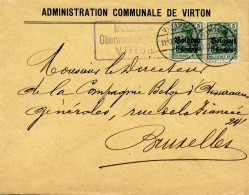 ADMINISTRATION COMMUNALE DE VIRTON
Virton
Belgien Belgien
Monsieur le Directeur
de la Compagnie Belge d'Assurances
générales, rue de la Fiancée
Bruxelles